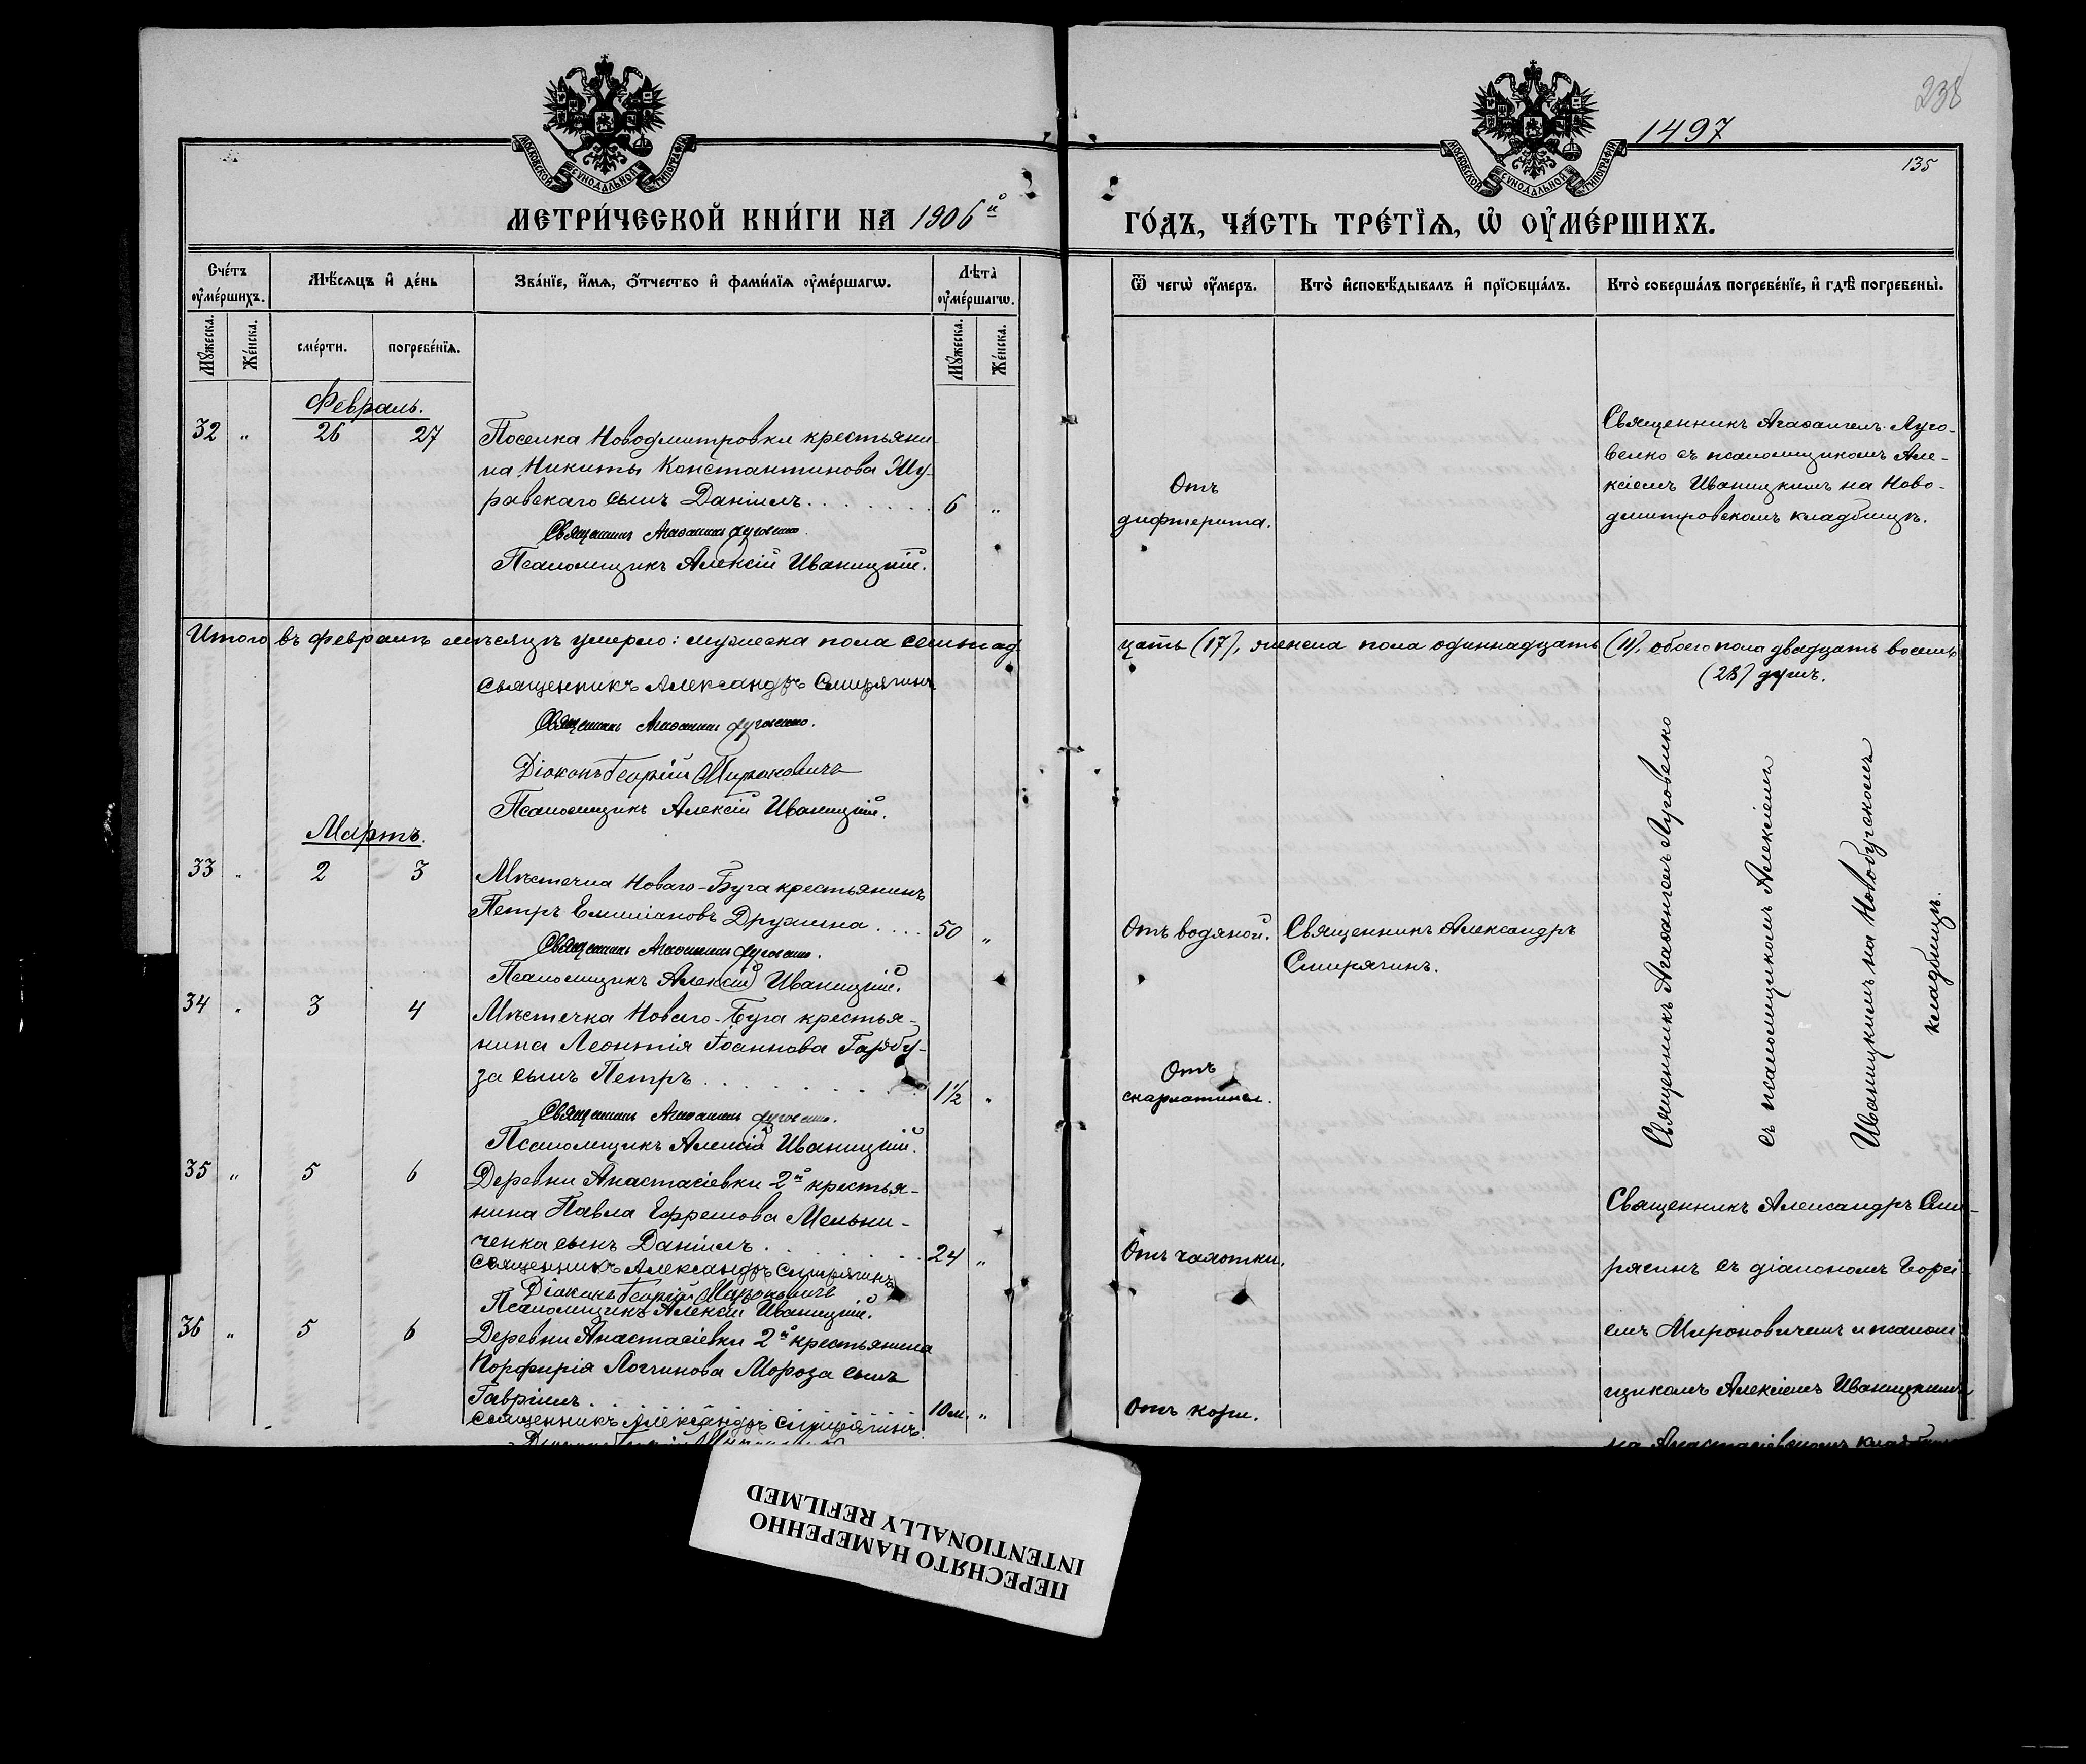 238
1497
135
МОСКОВСКОЙ СѴНОДАЛЬНОЙ ТИПОГРАФІИ
МОСКОВСКОЙ СѴНОДАЛЬНОЙ ТИПОГРАФІИ
МЕТРИ́ЧЕСКОЙ КНИ́ГИ НА 1906й
ГО́ДЪ, ЧА́СТЬ ТРЕ́ТЇѦ, Ѡ҆ ОУ҆МЕ́РШИХЪ.
Сче́тъ оу҆ме́ршихъ.
Мѣ́сѧцъ и҆ де́нь
Зва́нїе, и҆́мѧ, ѻ҆́тчество и҆ фами́лїѧ оу҆ме́ршагѡ.
Лѣта̀ оу҆ме́ршагѡ.
Ѿ чегѡ̀ оу҆́меръ.
Кто̀ и҆сповѣ́дывалъ и҆ прїѻбща́лъ.
Кто̀ соверша́лъ погребе́нїе, и҆ гдѣ̀ погребены̀.
Мꙋ́жеска.
Же́нска.
сме́рти.
погребе́нїѧ.
Мꙋ́жеска.
Же́нска.
Февраль.
32 " 26 27 Поселка Новодмитровки крестьяни-
на Никиты Константинова Жу-
равскаго сынъ Даніилъ. 6 "
Священникъ Агаѳангелъ Луговенко.
Псаломщикъ Алексій Иваницкій.
Отъ
дифтерита.
Священникъ Агаѳангелъ Луго-
венко съ псаломщикомъ Але-
ксіемъ Иваницкимъ на Ново-
дмитровскомъ кладбищѣ.
Итого въ февралѣ мѣсяцѣ умерло: мужеска пола семнад
цать (17), женска пола одиннадцать (11), обоего пола двадцать восемь
(28) душъ.
Священникъ Александръ Смирягинъ
Священникъ Агаѳангелъ Луговенко.
Діаконъ Георгій Мироновичъ
Псаломщикъ Алексій Иваницкій.
Мартъ.
33 " 2 3 Мѣстечка Новаго-Буга крестьянинъ
Петръ Емиліановъ Дружина 50 "
Священникъ Агаѳангелъ Луговенко.
Псаломщикъ Алексій Иваницкій.
Отъ водяной.
Священникъ Александръ
Смирягинъ.
Священникъ Агаѳангелъ Луговенко
съ псаломщикомъ Алексіемъ
Иваницкимъ на Новобугскомъ
кладбищѣ.
34 " 3 4 Мѣстечка Новаго-Буга крестья-
нина Леонтія Іоаннова Гарбу-
за сынъ Петръ 1½ "
Священникъ Агаѳангелъ Луговенко.
Псаломщикъ Алексій Иваницкій.
Отъ
скарлатины.
35 " 5 6 Деревни Анастасіевки 2й крестья-
нина Павла Ефремова Мельни-
ченка сынъ Даніилъ 24 "
Священникъ Александръ Смирягинъ
Діаконъ Георгій Мироновичъ
Псаломщикъ Алексій Иваницкій.
Отъ чахотки.
Священникъ Александръ Сми-
рягинъ съ діакономъ Георгі-
емъ Мироновичемъ и псалом-
щикомъ Алексіемъ Иваницкимъ
на Анастасіевскомъ кладбищѣ
36 " 5 6 Деревни Анастасіевки 2й крестьянина
Порфирія Логгинова Мороза сынъ
Гавріилъ 10 м. "
Священникъ Александръ Смирягинъ.
Отъ кори.
ПЕРЕСНЯТО НАМЕРЕННО
INTENTIONALLY REFILMED